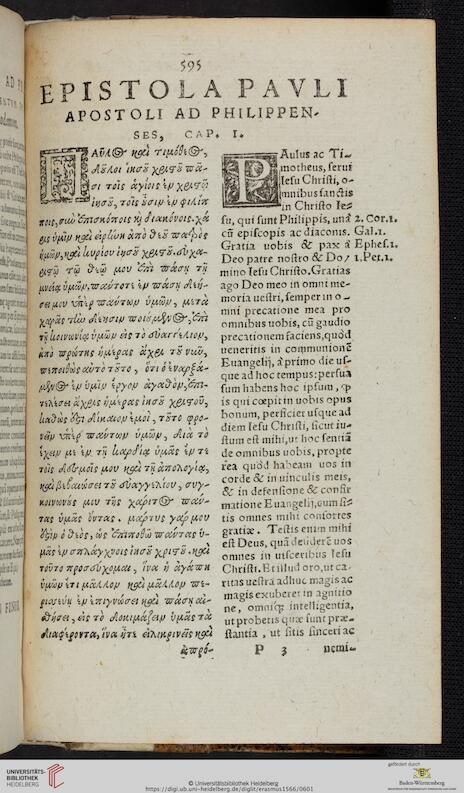 595
EPISTOLA PAVLI
APOSTOLI AD PHILIPPEN-
SES, CAP. I.
ΠΑῦλος καὶ τιμόθεος,
δοῦλοι ἰησοῦ χριστοῦ πᾶ-
σι τοῖς ἁγίοις ἐν χριστῷ
ἰησοῦ, τοῖς οὖσιν ἐν φιλίπ
ποις, σὺν ἐπισκόποις κὶ διακόνοις. χά
ρις ὑμῖν καὶ εἰρήνη ἀπὸ θεοῦ πατρὸς
ἡμῶν, καὶ κυρίου ἰησοῦ χριστοῦ. εὐχα-
ριστῶ τῷ θεῷ μου ἐπὶ πάσῃ τῇ
μνείᾳ ὑμῶν, πάντοτε ἐν πάσῃ δεή-
σει μου ὑπὲρ πάντων ὑμῶν, μετὰ
χαρᾶς τὴν δέησιν ποιούμενος, ἐπὶ
τῇ κοινωνίᾳ ὑμῶν εἰς τὸ εὐαγγέλιον,
ἀπὸ πρώτης ἡμέρας ἄχρι τοῦ νῦν,
πεποιθὼς αὐτὸ τοῦτο, ὅτι ὁ ἐναρξά-
μενος ἐν ὑμῖν ἔργον ἀγαθὸν, ἐπι-
τελέσει ἄχρις ἡμέρας ἰησοῦ χριστοῦ,
καθώς ὅτι δίκαιον ἐμοὶ, τοῦτο φρο-
νεῖν ὑπὲρ πάντων ὑμῶν, διὰ τὸ
ἔχειν με ἐν τῇ καρδίᾳ ὑμᾶς ἔν τε
τοῖς δεσμοῖς μου καὶ τῇ ἀπολογίᾳ,
καὶ βεβαιώσει τοῦ εὐαγγελίου, συγ-
κοινωνούς μου τῆς χάριτος πάν-
τας ὑμᾶς ὄντας. μάρτυς γάρ μου
ὅτιν ὁ θεὸς, ὡς ἐπιποθῶ πάντας ὑ-
μᾶς ἐν σπλάγχνοις ἰησοῦ χριστοῦ. καὶ
τοῦτο προσεύχομαι, ἵνα ἡ ἀγάπη
ὑμῶν ἔτι μᾶλλον καὶ μᾶλλον πε-
ρισσεύῃ ἐν ἐπιγνώσει καὶ πάσῃ αἰ-
σθήσει, εἰς τὸ δοκιμάζειν ὑμᾶς τὰ
διαφέροντα, ἵνα ἦτε εἰλικρινεῖς καὶ
ἀπρό-
PAulus ac Ti-
motheus, serui
Iesu Christi, o-
mnibus sanctis
in Christo Ie-
su, qui sunt Philippis, unà
cū episcopis ac diaconis.
Gratia uobis & pax à
Deo patre nostro & Do/
mino Iesu Christo. Gratias
ago Deo meo in omni me-
moria uestri, semper in o-
mni precatione mea pro
omnibus uobis, cū gaudio
precationem faciens, quòd
ueneritis in communionē
Euangelij, à primo die us-
que ad hoc tempus: persua
sum habens hoc ipsum, ꝙ
is qui cœpit in uobis opus
bonum, perficiet usque ad
diem Iesu Christi, sicut iu-
stum est mihi, ut hoc sentiā
de omnibus uobis, propte
rea quòd habeam uos in
corde & in uinculis meis,
& in defensione & confir
matione Euangelij, eum si-
tis omnes mihi consortes
gratiæ. Testis enim mihi
est Deus, quā desiderē uos
omnes in uisceribus Iesu
Christi. Et illud oro, ut ca-
ritas uestra adhuc magis ac
magis exuberet in agnitio
ne, omniq́ꝫ intelligentia,
ut probetis quæ sunt præ-
stantia, ut sitis sinceri ac
P 3 nemi-
2. Cor. 1.
Gal. 1.
Ephes. 1.
1. Pet. 1.
UNIVERSITÄTS-
BIBLIOTHEK
HEIDELBERG
© Universitätsbibliothek Heidelberg
https://digi.ub.uni-heidelberg.de/diglit/erasmus1566/0601
gefördert durch
Baden-Württemberg